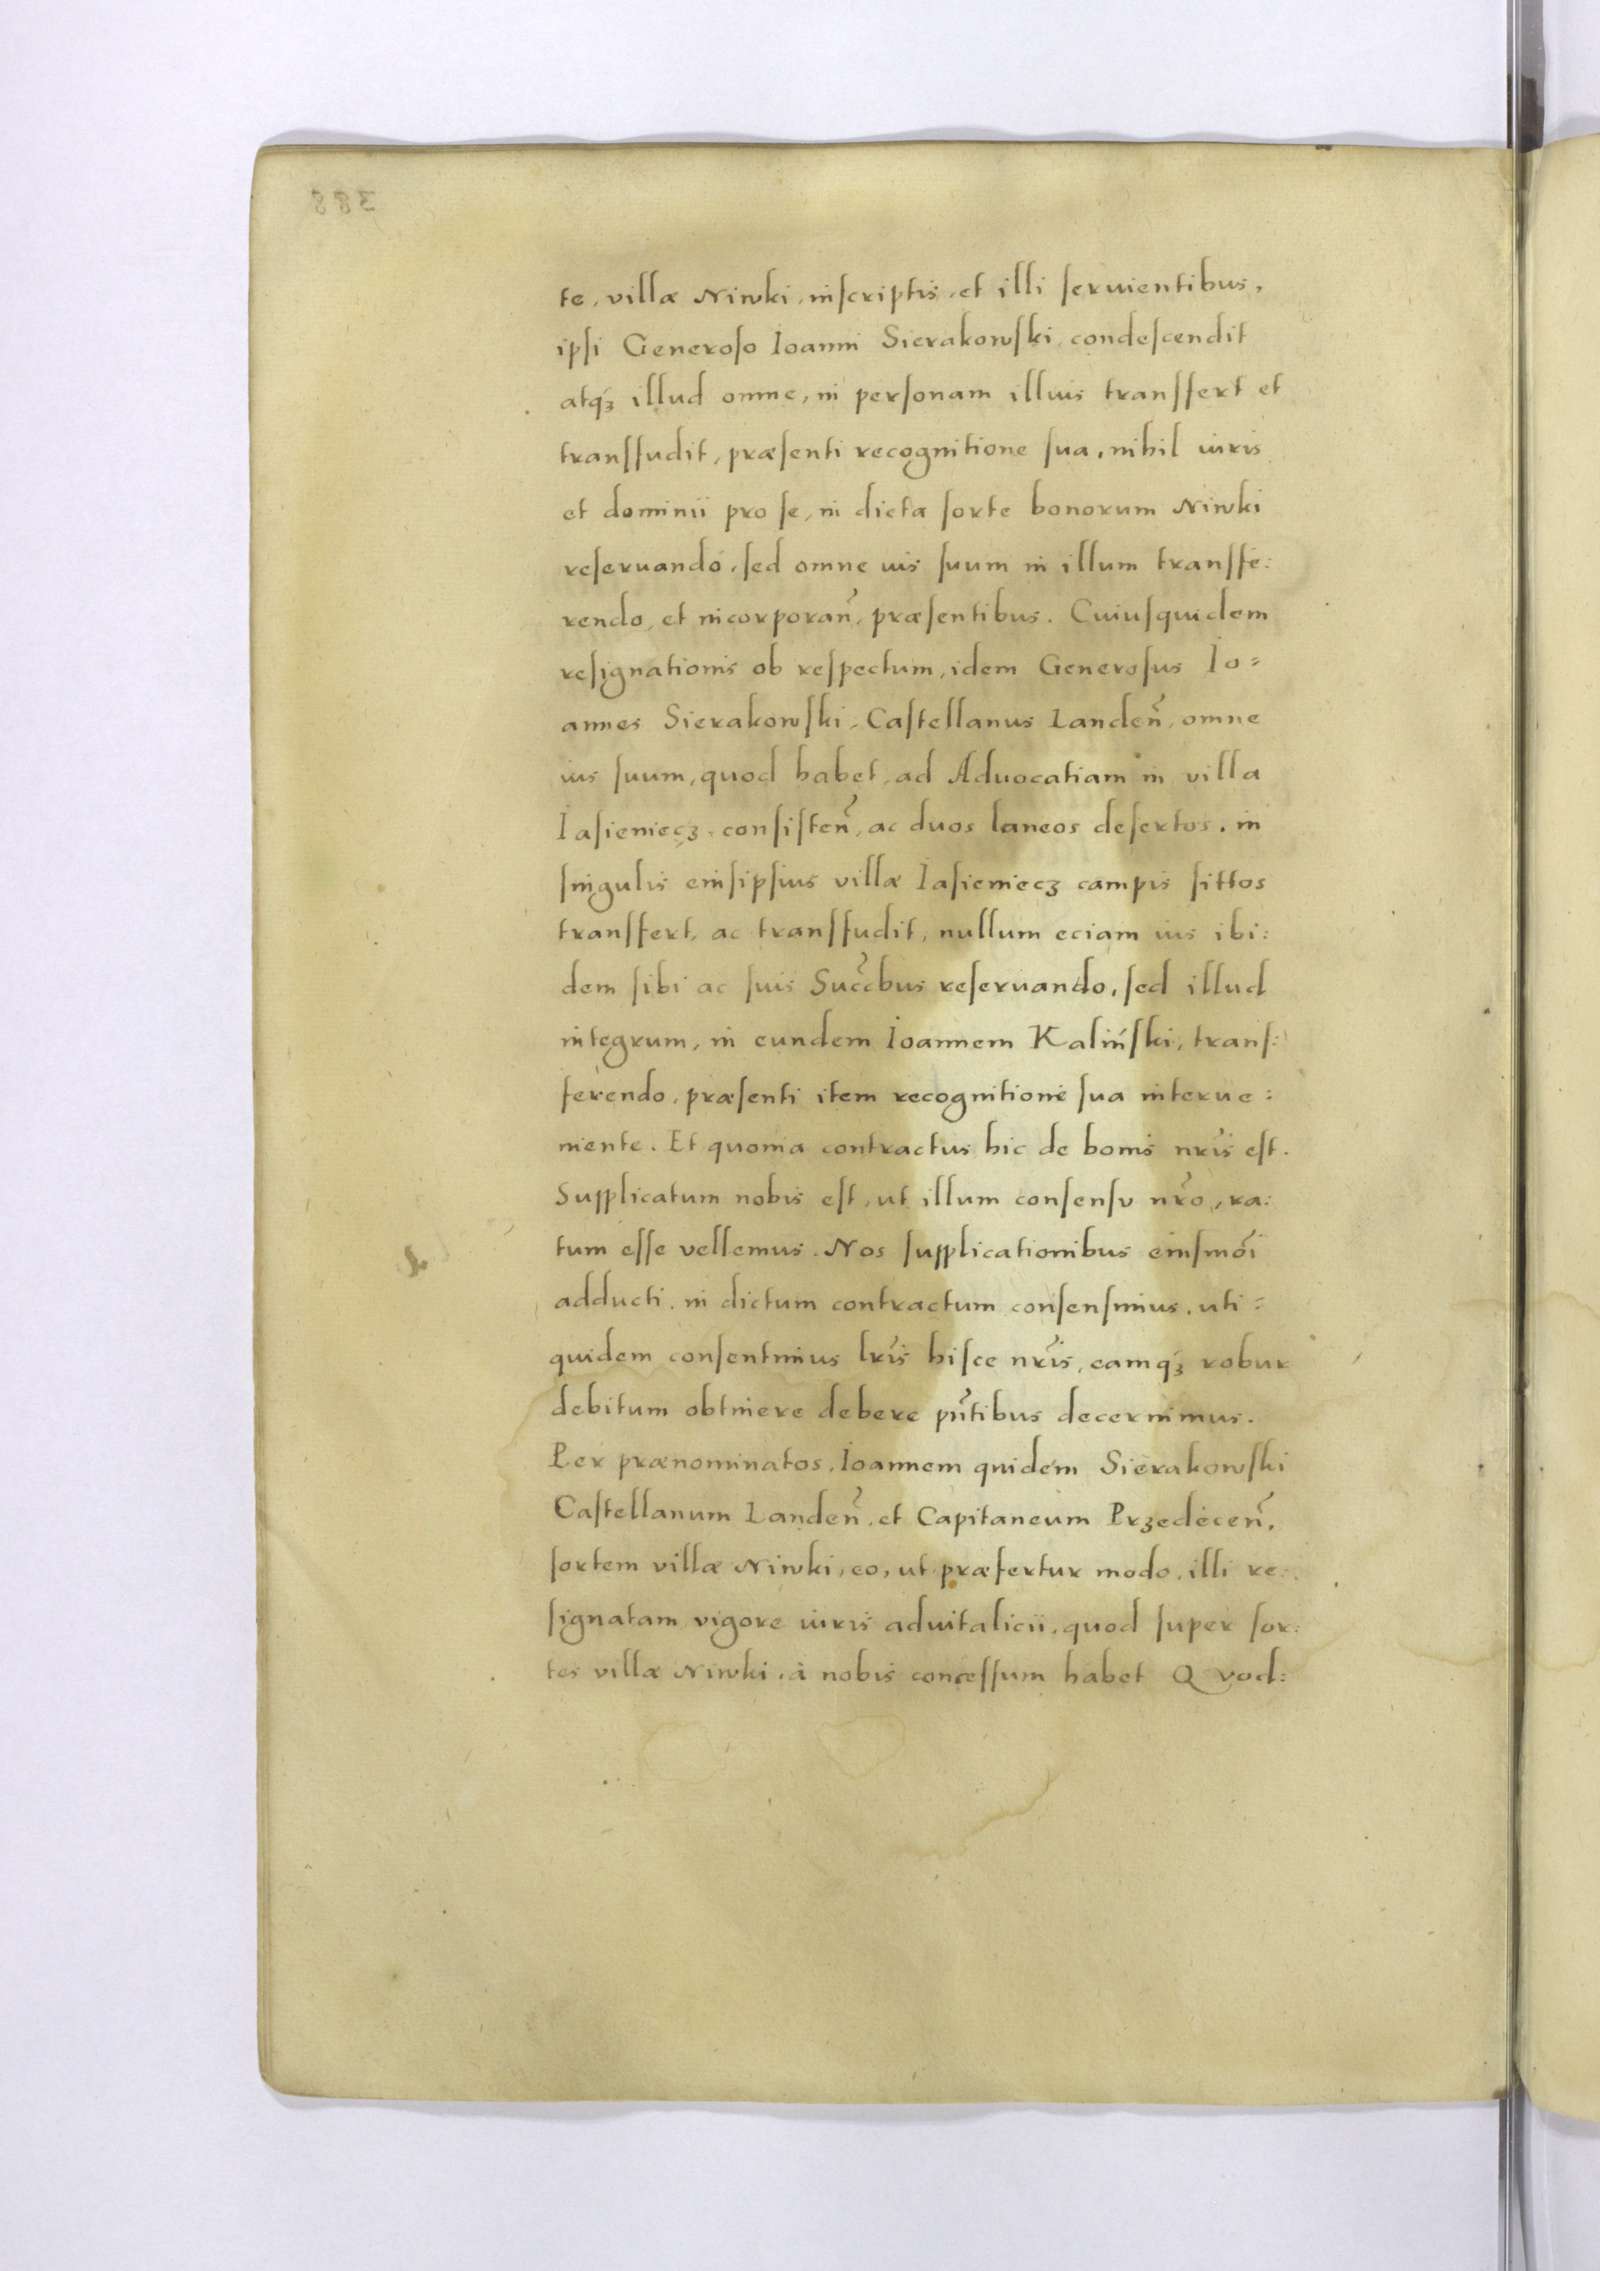 te, villæ Niwki, inſcriptis, et illi ſeruientibus,
ipſi Generoſo Ioanni Sierakowſki, condeſcendit
atq́ꝫ illud omne, in perſonam illius tranſfert et
tranſfudit, præſenti recognitione ſua, nihil iuris
et dominii pro ſe, in dicta ſorte bonorum Niwki
reſeruandó, ſed omne ius ſuum in illum tranſfe:
rendo, et incorporañ, præſentibus. Cuiuſquidem
reſignationis ob reſpectum, idem Generoſus Io=
annes Sierakowſki, Caſtellanus Landeñ, omne
ius ſuum, quod habet, ad Aduocatiam in villa
Iaſieniecz, conſiſteñ, ac duos laneos deſertos, in
ſingulis eiuſipſius villæ Iaſieniecz campis ſittos
tranſfert, ac tranſfudit, nullum eciam ius ibi:
dem ſibi ac ſuis Succ̃bus reſeruando, ſed illud
integrum, in eundem Ioannem Kalińſki, tranſ:
ferendo, præſenti item recognitione ſua interue:
niente. Et quonia contractus hic de bonis nr̃is eſt.
Supplicatum nobis eſt, ut illum conſenſu nr̃o, ra:
tum eſſe vellemus. Nos ſupplicationibus eiuſmõi
adducti, in dictum contractum conſenſimus, uti=
quidem conſentimus lr̃is hiſce nr̃is, eamq́ꝫ robur
debitum obtinere debere pñtibus decernimus.
Per prænominatos, Ioannem quidem Sierakowſki
Caſtellanum Landeñ, et Capitaneum Przedeceñ,
ſortem villæ Niwki, eo, ut præfertur modo, illi re:
ſignatam vigore iuris aduitalicii, quod ſuper ſor:
tes villæ Niwki, à nobis conceſſum habet Qvod: